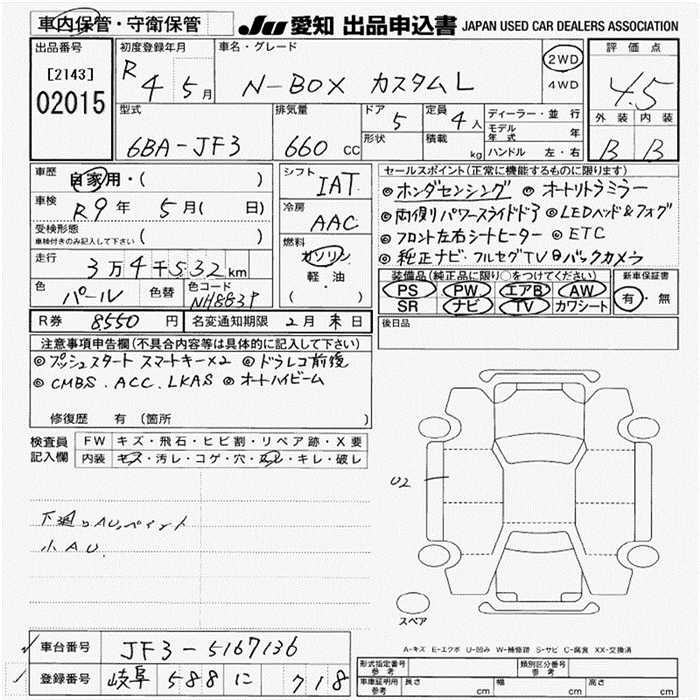 車内保管・守衛保管
JU 愛知 出品申込書 JAPAN USED CAR DEALERS ASSOCIATION
出品番号 初度登録年月 車名・グレード 2WD 評価点
[2143] R4 5月 N-BOX カスタムL 4WD 4.5
02015
型式 排気量 ドア 定員 ディーラー・並行 外装 内装
6BA-JF3 660 CC 5 4人 モデル年式 年 B B
形状 積載 kg ハンドル 左・右
車歴 自家用・( ) シフト IAT セールスポイント(正常に機能するものに限ります)
車検 R9年 5月( 日) 冷房 AAC ◎ホンダセンシング ◎オートリトラミラー
受検形態 ( ) ◎両側パワースライドドア ◎LEDヘッド&フォグ
車検付きのみ記入して下さい 燃料 ◎フロント左右シートヒーター ◎ETC
走行 3万4千532km ガソリン ◎純正ナビ・フルセグTV◎バックカメラ
軽・油 装備品(純正品に限り○をつけてください) 新車保証書
色 パール 色替 色コード NH883P ( ) PS PW エアB AW 有・無
SR ナビ TV カワシート
R券 8550円 名変通知期限 2月末日 後日品
注意事項申告欄(不具合内容等は具体的に記入して下さい)
◎プッシュスタート スマートキー×2 ◎ドラレコ前後
◎CMBS.ACC.LKAS ◎オートハイビーム
修復歴 有 (箇所 )
検査員 FW キズ・飛石・ヒビ割・リペア跡・X要
記入欄 内装 キズ・汚レ・コゲ・穴・スレ・キレ・破レ
U2
下廻りAU,ペイント
小AU.
スペア
A-キズ E-エクボ U-凹み W-補修跡 S-サビ C-腐食 XX-交換済
車台番号 JF3-5167136
形式指定番号 参考 類別区分番号 参考
登録番号 岐阜 588 に 718
車庫証明用 参考 長さ cm 幅 cm 高さ cm